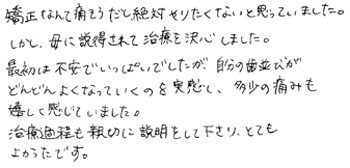 矯正なんて痛そうだし絶対やりたくないと思っていました。
しかし、母に説得されて治療を決心しました。
最初は不安でいっぱいでしたが、自分の歯並びが
どんどんよくなっていくのを実感し、多少の痛みも
嬉しく感じていました。
治療過程も親切に説明をして下さり、とても
よかったです。